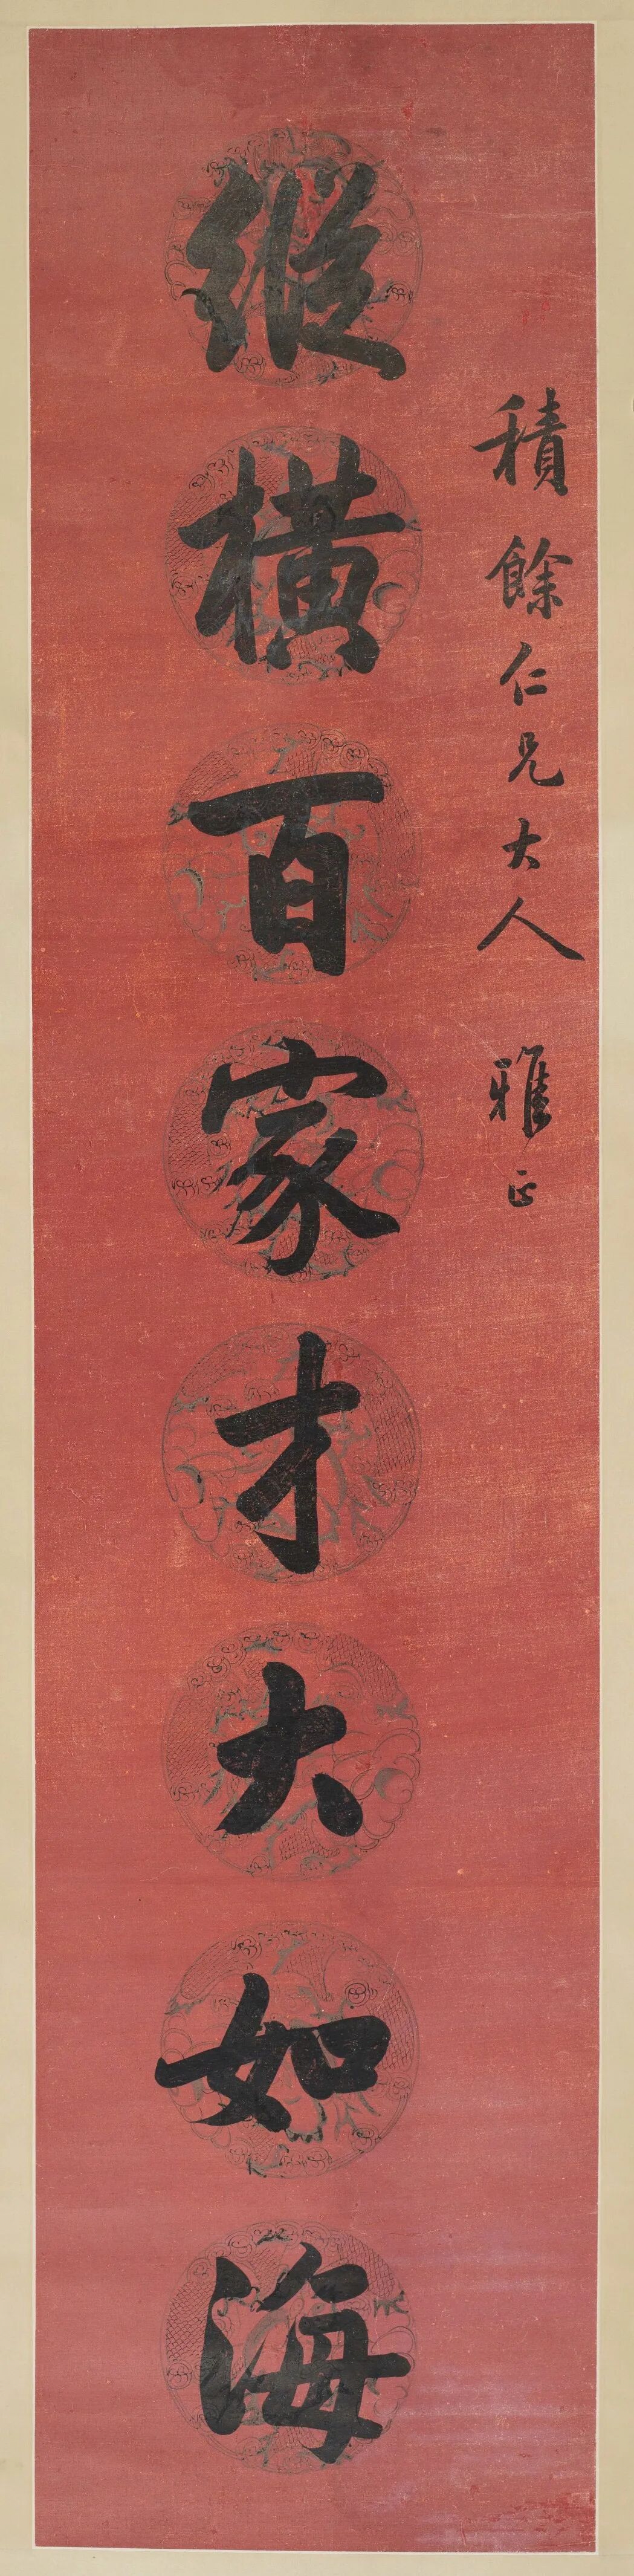 積餘仁兄大人 雅正
縱橫百家才大如海